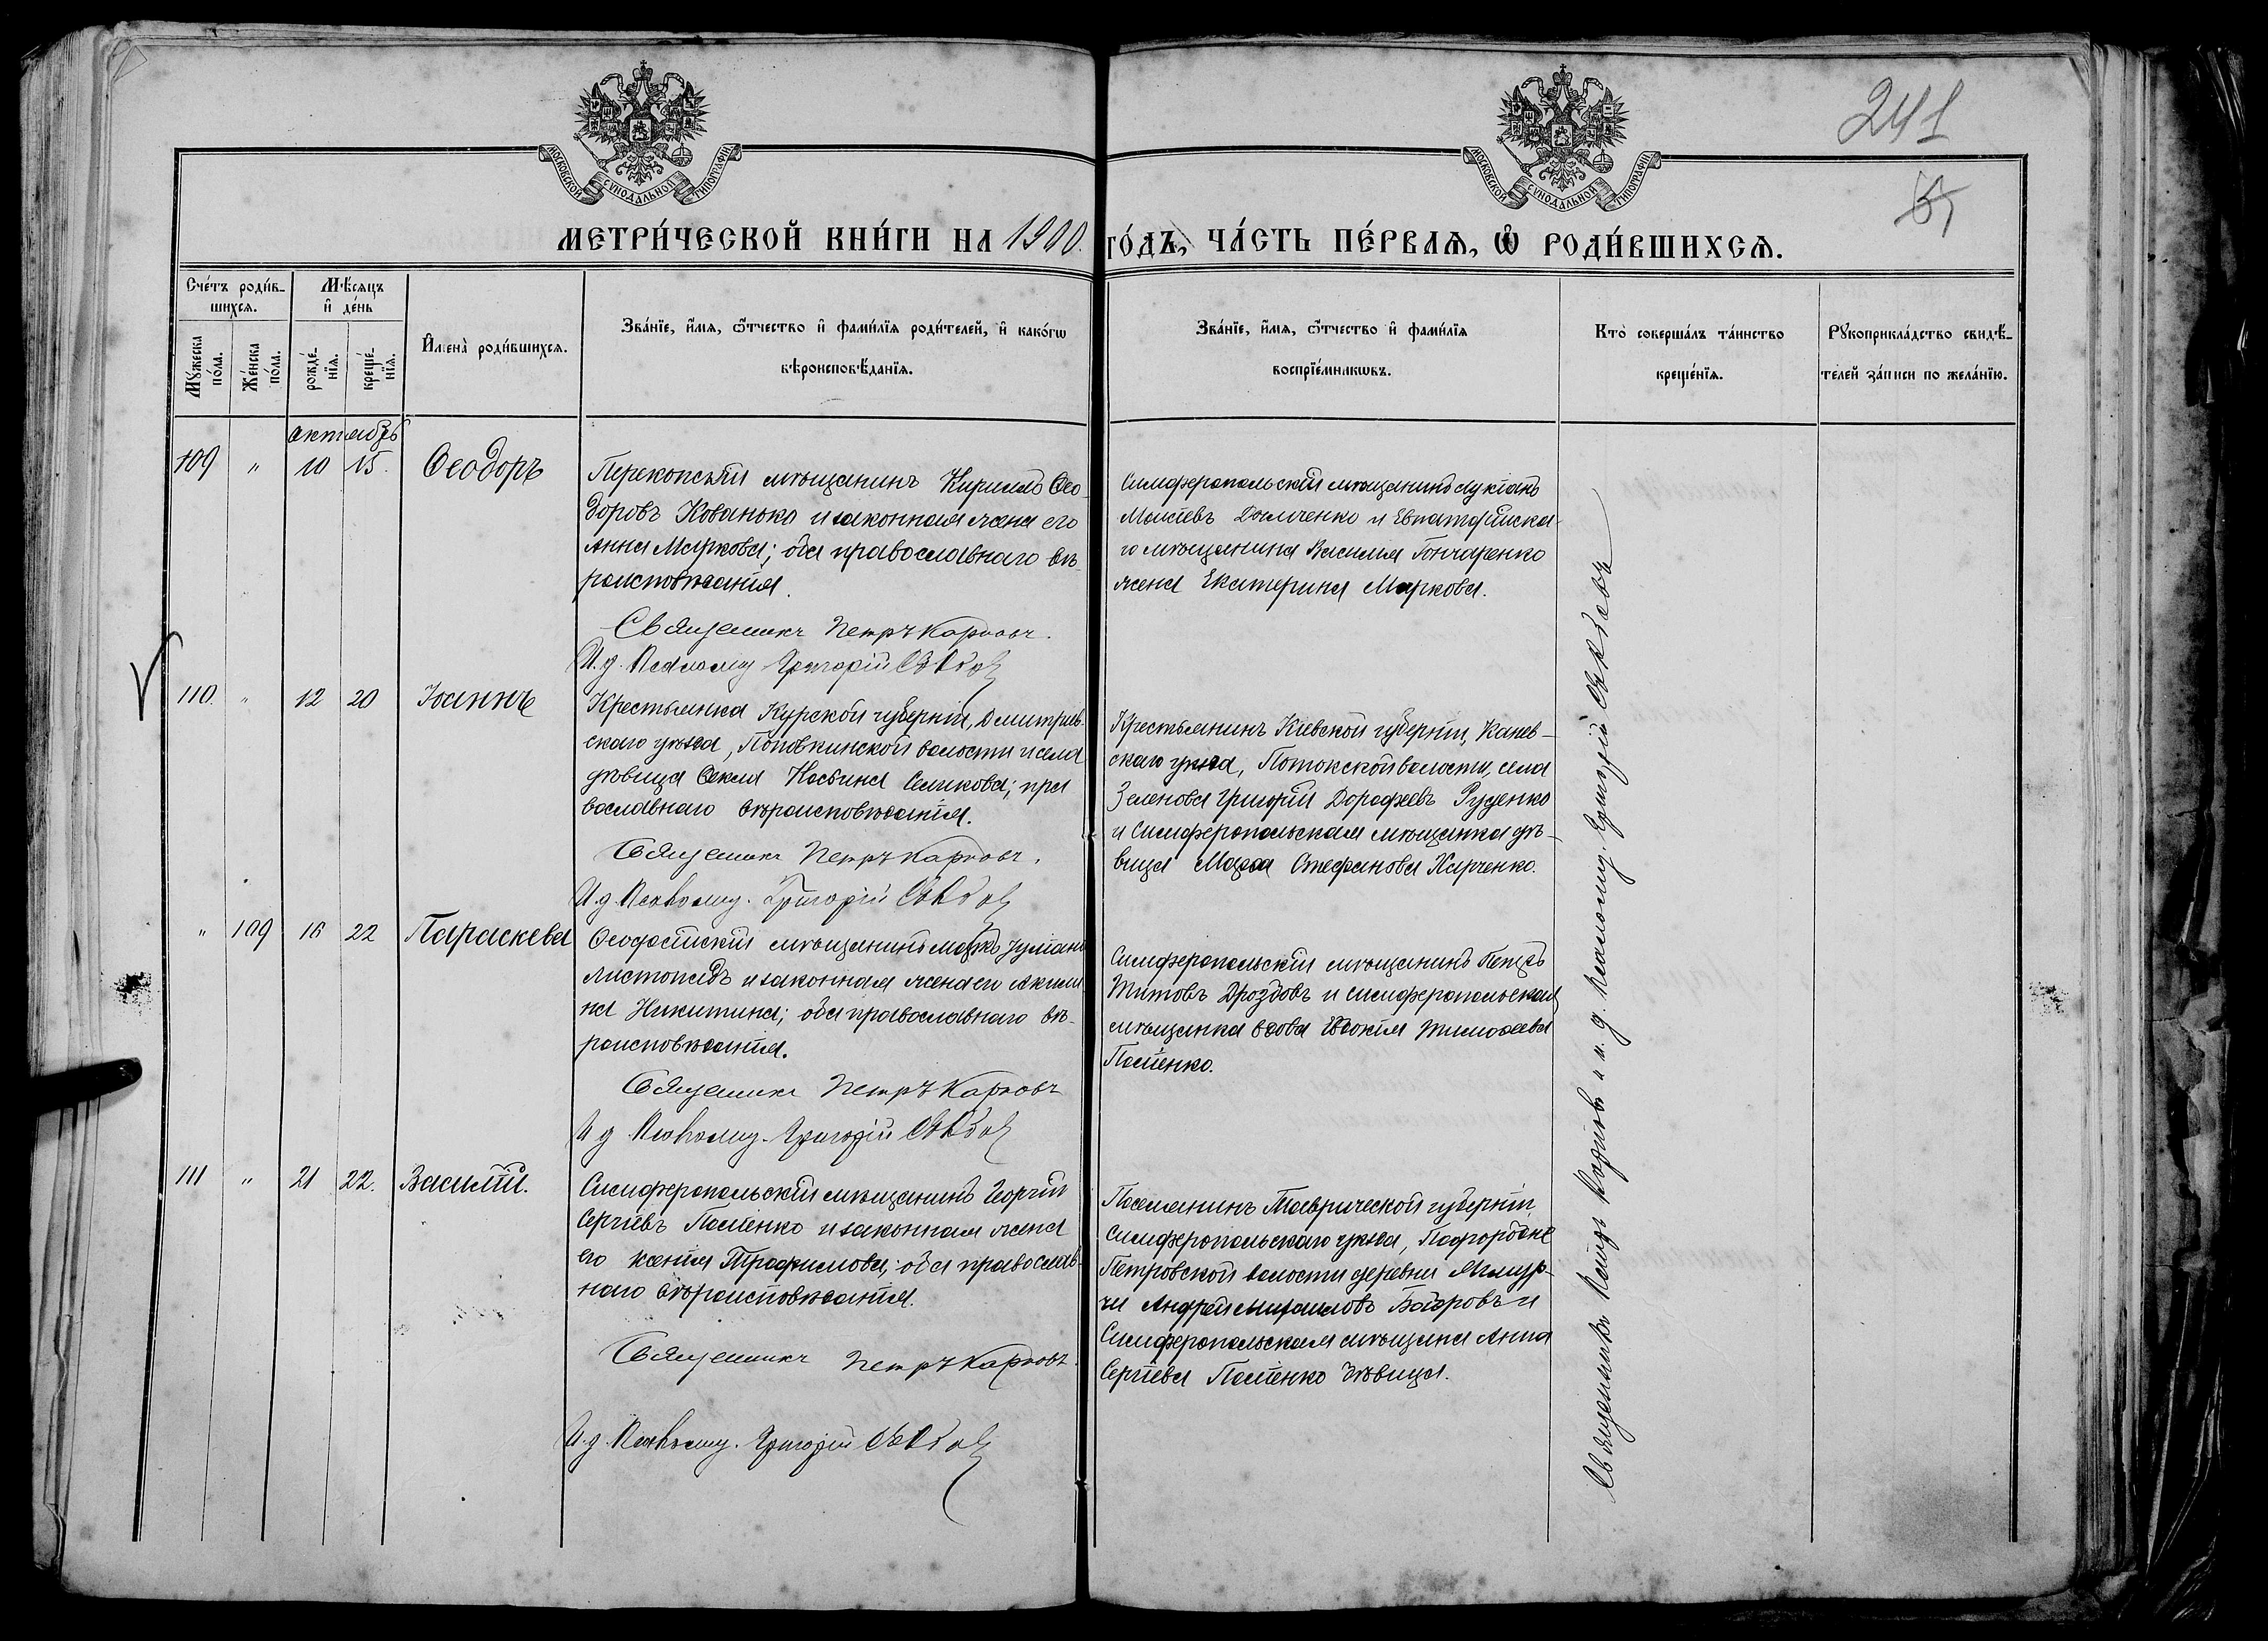 241
МОСКОВСКОЙ СѴНОДАЛЬНОЙ ТИПОГРАФІИ
МОСКОВСКОЙ СѴНОДАЛЬНОЙ ТИПОГРАФІИ
МЕТРИ́ЧЕСКОЙ КНИ́ГИ НА 1900. ГО́ДЪ, ЧА́СТЬ ПЕ́РВАЯ, Ѡ РОДИ́ВШИХСЯ.
Сче́тъ роди́в-
шихся.
Мѣ́сяцъ
и҆ де́нь
Мꙋ́жеска
по́ла.
Же́нска
по́ла.
рожде́-
нїя.
креще́-
нїя.
И҆мена̀ роди́вшихся.
Зва́нїе, и҆́мя, ѻ҆́тчество и҆ фами́лїя роди́телей, и҆ како́гѡ
вѣроисповѣ́данїя.
Зва́нїе, и҆́мя, ѻ҆́тчество и҆ фами́лїя
воспрїе́мникѡвъ.
Кто̀ соверша́лъ та́инство
креще́нїя.
Рꙋкоприкла́дство свидѣ́-
телей за́писи по жела́нїю.
Октябрь
109 " 10 15. Ѳеодоръ
Перекопскій мѣщанинъ Кириллъ Ѳео-
доровъ Кованько и законная жена его
Анна Маркова; оба православнаго вѣ-
роисповѣданія.
Священникъ Петръ Карповъ.
И. д. Псаломщ. Григорій
Симферопольскій мѣщанинъ Лукіанъ
Моисеевъ и Евпаторійска-
го мѣщанина Василія Гончаренко
жена Екатерина Маркова.
110. " 12 20 Іоаннъ
Крестьянка Курской губерніи, Дмитріев-
скаго уѣзда, Поповкинской волости и села
дѣвица Ѳекла Селикова; пра
вославнаго вѣроисповѣданія.
Священникъ Петръ Карповъ.
И. д. Псаломщ. Григорій
Крестьянинъ Кіевской губерніи, Канев-
скаго уѣзда, Потокской волости, села
Зеленова Григорій Дорофеевъ Руденко
и Симферопольская мѣщанка дѣ-
вица Стефанова Харченко.
" 109 16 22 Параскева
Ѳеодосійскій мѣщанинъ Марко
Листопадъ и законная жена его Акили
на Никитина; оба православнаго вѣ-
роисповѣданія.
Священникъ Петръ Карповъ
И д. Псаломщ. Григорій
Симферопольскій мѣщанинъ Петръ
Титовъ Дроздовъ и симферопольская
мѣщанка вдова Евдокія Тимофеева
111 " 21 22. Василій.
Симферопольскій мѣщанинъ Георгій
Сергіевъ и законная жена
его Ксенія Трофимова, оба православ-
наго вѣроисповѣданія.
Священникъ Петръ Карповъ.
И. д. Псаломщ. Григорій
Поселянинъ Таврической губерніи,
Симферопольскаго уѣзда, Подгородне
Петровской волости деревни
чи Андрей Михаиловъ и
Симферопольская мѣщанка Анна
Сергіева дѣвица.
Священникъ Петръ Карповъ и и. д. Псаломщ. Григорій